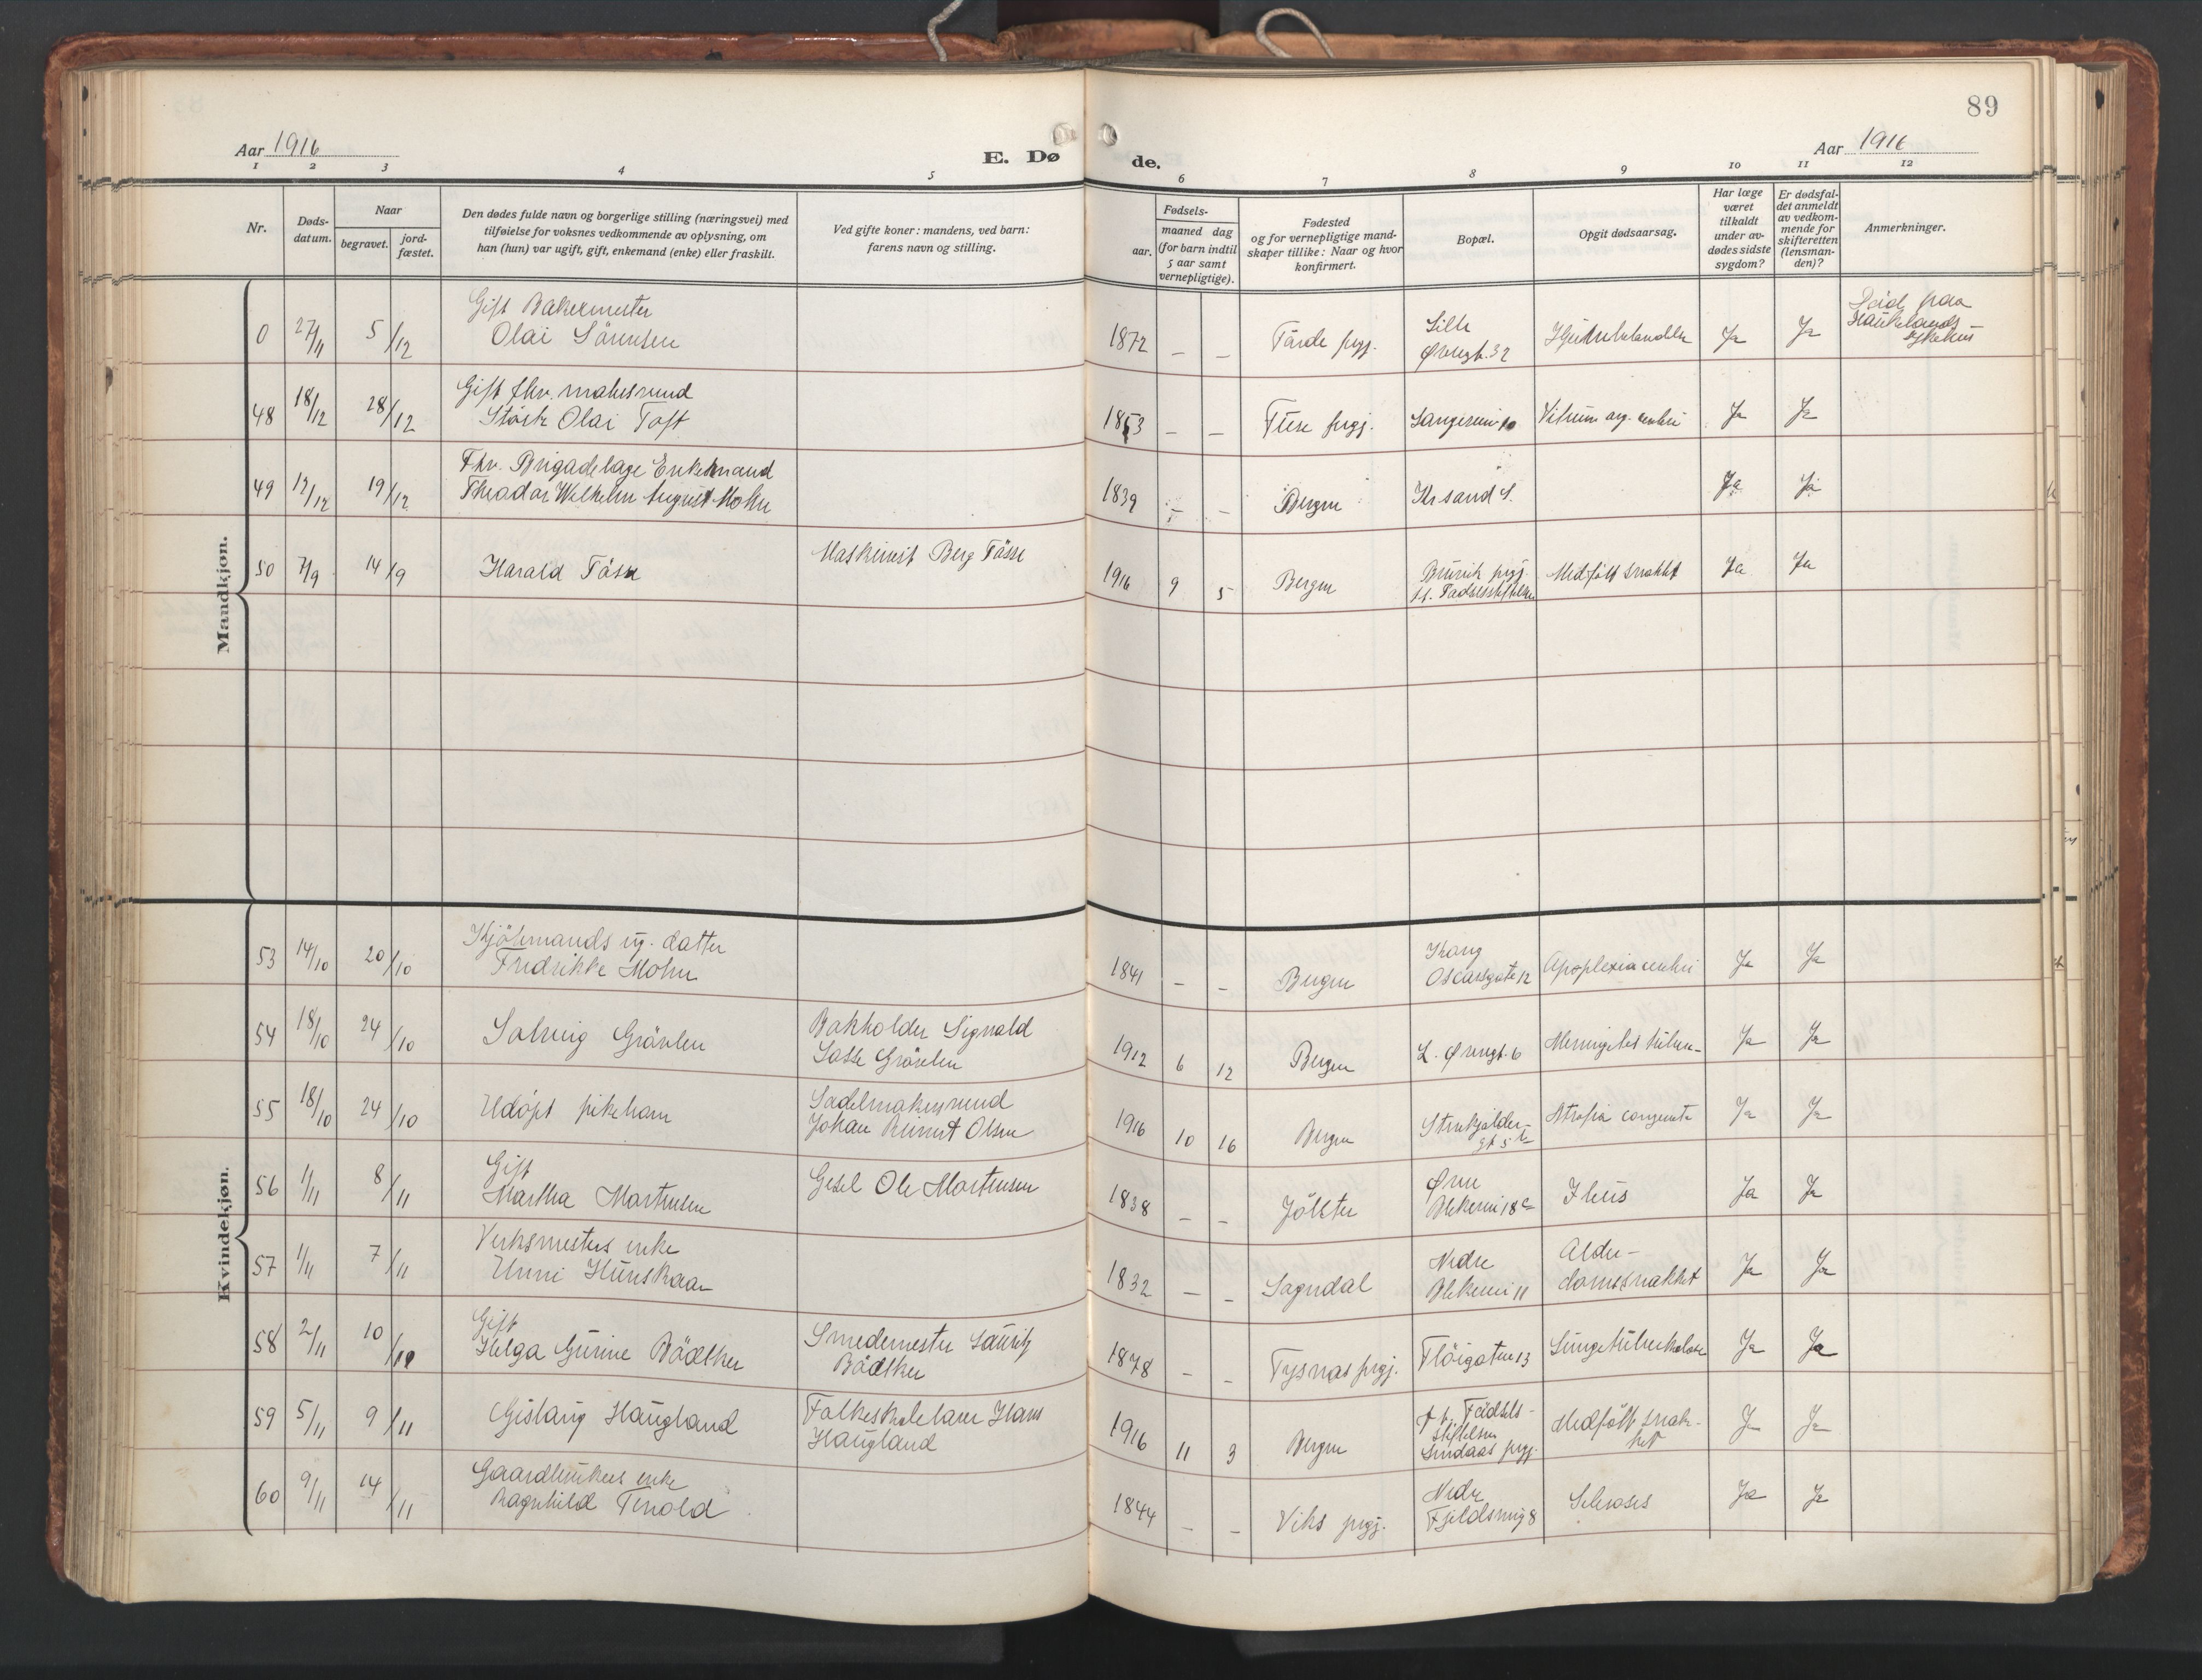 89
Aar 1916
E. Dø
de.
Aar 1916
1 2 3 4 5 6 7 8 9 10 11 12
Nr.
Døds-
datum.
Naar
begravet.
jord-
fæstet.
Den dødes fulde navn og borgerlige stilling (næringsvei) med
tilføielse for voksnes vedkommende av oplysning, om
han (hun) var ugift, gift, enkemand (enke) eller fraskilt.
Ved gifte koner: mandens, ved barn:
farens navn og stilling.
Fødsels-
aar.
maaned dag
(for barn indtil
5 aar samt
vernepligtige).
Fødested
og for vernepligtige mand-
skaper tillike: Naar og hvor
konfirmert.
Bopæl.
Opgit dødsaarsag.
Har læge
været
tilkaldt
under av-
dødes sidste
sygdom?
Er dødsfal-
det anmeldt
av vedkom-
mende for
skifteretten
(lensman-
den)?
Anmerkninger.
Mandkjøn.
0 27/11 5/12 Gift Bakermester
Olai 1872 – – Førde prgj. Lille
Øvregt. 32 Ja Ja Død paa
Haukelands
sykehus
48 18/12 28/12 Gift fhv. malersvend
Olai Toft 1853 – – prgj. 10 Vitium org. Ja Ja
49 12/12 19/12 Fhv. Brigadelæge Enkemand
Theodor Wilhelm August Mohn 1839 – – Bergen Krsand S. Ja Ja
50 7/9 14/9 Harald Maskinist Berg 1916 9 5 Bergen prgj.
Medfött svakhet Ja Ja
Kvindekjøn.
53 14/10 20/10 Kjöbmands ug. datter
Fredrikke Mohn 1841 – – Bergen Kong
Oscarsgate 12 Apoplexia cerebri Ja Ja
54 18/10 24/10 Solveig Grävlen
Sigvald
Lasse Grävlen 1912 6 12 Bergen L. Øvregt. 6 Ja Ja
55 18/10 24/10 Udöpt pikebarn Sadelmakersvend
Johan Olsen 1916 10 16 Bergen
gt 5 Atrofia congenita Ja Ja
56 1/11 8/11 Gift
Martha Martinsen Ole Martinsen 1838 – – Jölster Øvre
Blekevei 18 c Ileus Ja Ja
57 1/11 7/11 Verksmesters enke
Unni Hunskaar 1832 – – Sogndal Nedre
Blekevei 11 Alder-
domssvakhet Ja Ja
58 2/11 10/11 Gift
Helga Gurine Bödtker Smedemester Lauritz
Bödtker 1878 – – Tysnæs prgj. Flöigaten 13 Lungetuberkulose Ja Ja
59 5/11 9/11 Gislaug Haugland Folkeskolelærer Hans
Haugland 1916 11 3 Bergen Fødsels-
stiftelsen
Lindaas prgj. Medfött svak-
het Ja Ja
60 9/11 14/11 Gaardbrukers enke
Ragnhild Finold 1844 – – Viks prgj. Nedre
Fjeldsmug 8 Ja Ja